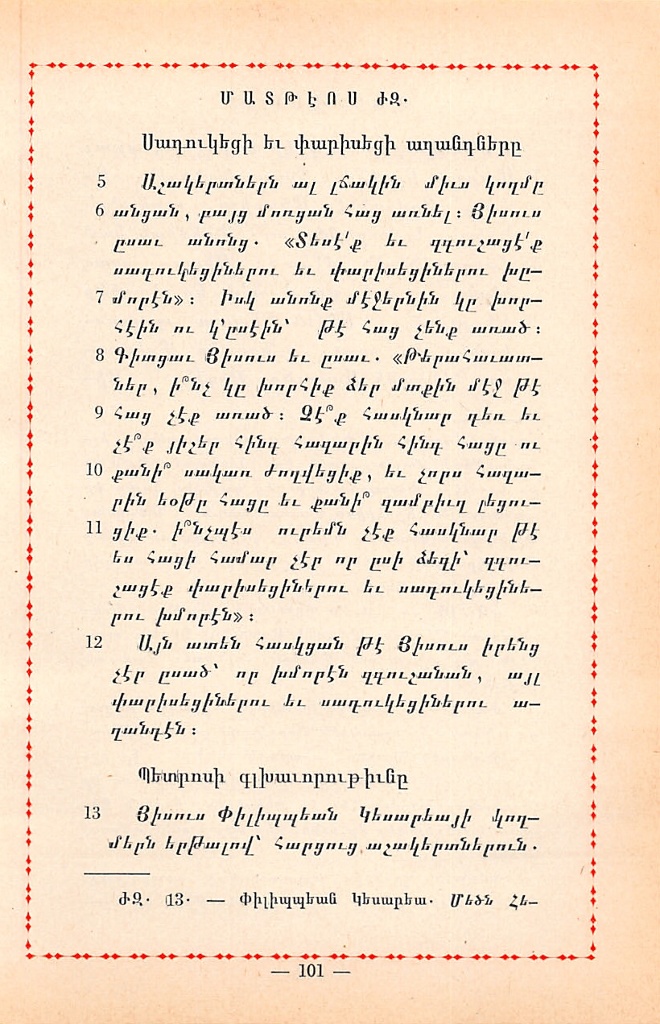 ՄԱՏԹԷՈՍ ԺԶ․
Սադուկեցի եւ փարիսեցի աղանդները
5 Աշակերտներն ալ լճակին միւս կողմը
6 անցան, բայց մոռցան հաց առնել։ Յիսուս
ըսաւ անոնց․ «Տեսէ՛ք եւ զգուշացէ՛ք
սադուկեցիներու եւ փարիսեցիներու խը–
7 մորէն»։ Իսկ անոնք մէջերնին կը խոր–
հէին ու կ՚ըսէին՝ թէ հաց չենք առած։
8 Գիտցաւ Յիսուս եւ ըսաւ․ «Թերահաւատ–
ներ, ի՞նչ կը խորհիք ձեր մտքին մէջ թէ
9 հաց չէք առած։ Չէ՞ք հասկնար դեռ եւ
չէ՞ք յիշեր հինգ հազարին հինգ հացը ու
10 քանի՞ սակառ ժողվեցիք, եւ չորս հազա–
րին եօթը հացը եւ քանի՞ զամբիւղ լեցու–
11 ցիք․ ի՞նչպէս ուրեմն չէք հասկնար թէ
ես հացի համար չէր որ ըսի ձեզի՝ զգու–
շացէք փարիսեցիներու եւ սադուկեցինե–
րու խմորէն»։
12 Այն ատեն հասկցան թէ Յիսուս իրենց
չէր ըսած՝ որ խմորէն զգուշանան, այլ
փարիսեցիներու եւ սադուկեցիներու ա–
ղանդէն։
Պետրոսի գլխաւորութիւնը
13 Յիսուս Փիլիպպեան Կեսարեայի կող–
մերն երթալով՝ հարցուց աշակերտներուն․
ԺԶ․ 13․ — Փիլիպպեան Կեսարեա․ Մեծն Հե–
— 101 —